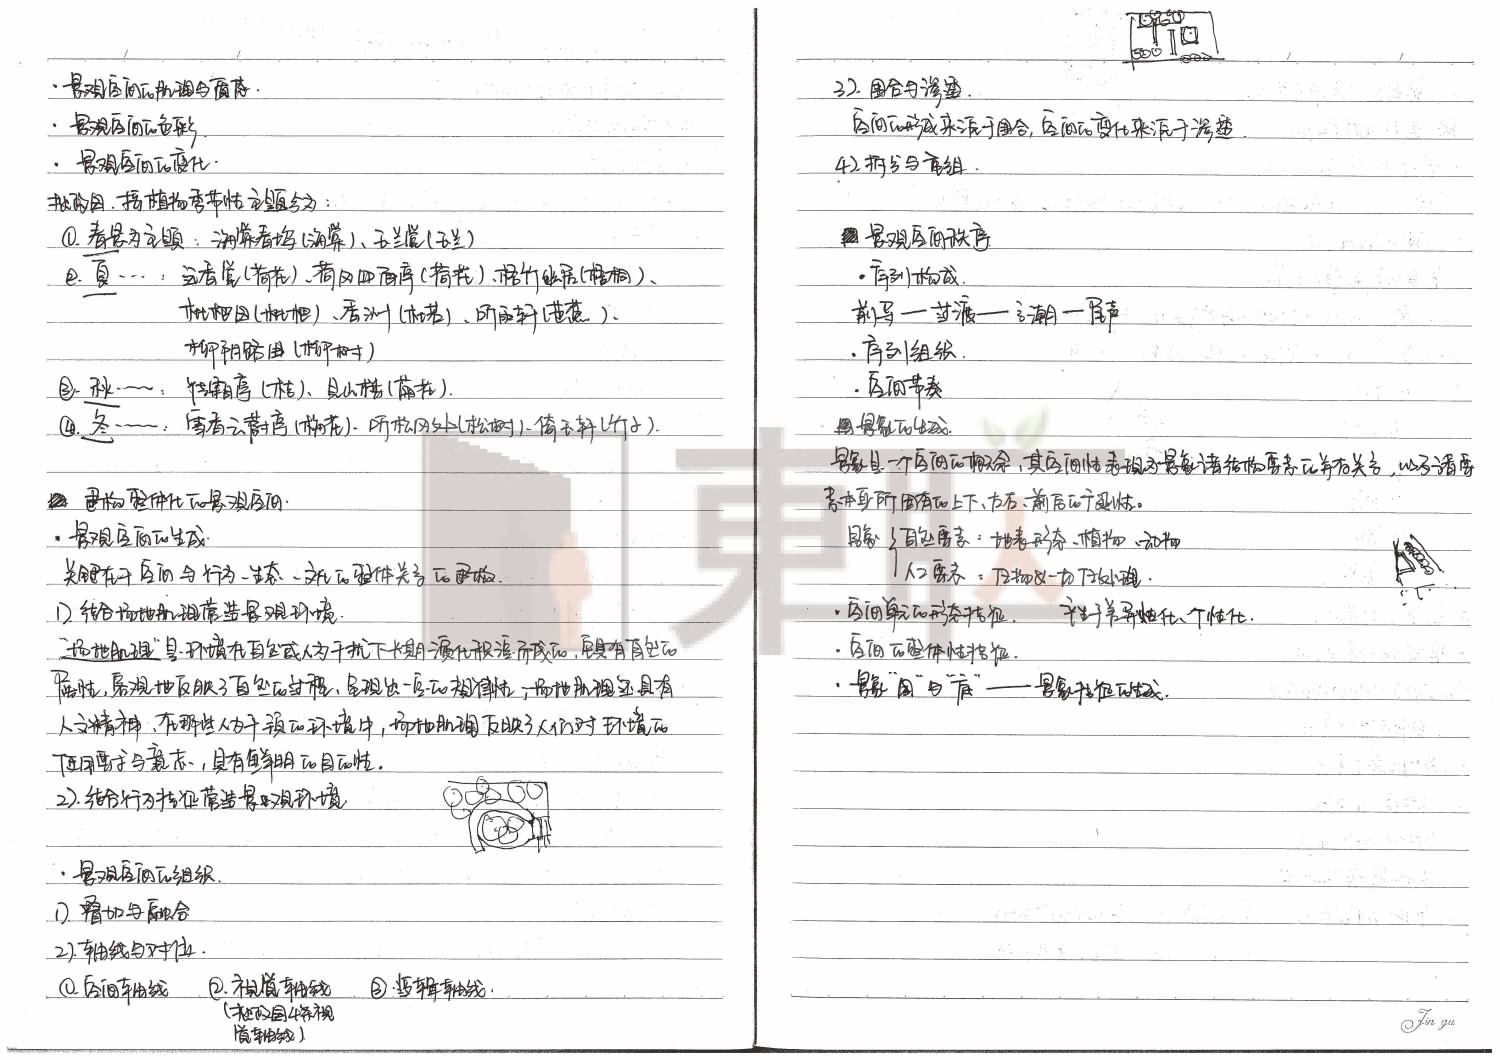 · 景观空间的肌理与质感.
· 景观空间的色彩.
· 景观空间的变化.
拙政园.按植物季节性主题分为:
①.春景为主题:海棠春坞(海棠)、玉兰堂(玉兰)
②.夏……:远香堂(荷花)、荷风四面亭(荷花)、梧竹幽居(梧桐)、
枇杷园(枇杷)、香洲(杜若)、听雨轩(芭蕉)、
柳荫路曲(柳树)
③.秋……:待霜亭(桔)、见山楼(菊花).
④.冬……:雪香云蔚亭(梅花)、听松风处(松树)、倚玉轩(竹子).
建构整体化的景观空间.
· 景观空间的生成.
关键在于空间与行为、生态、文化的整体关系的建构.
1) 结合场地肌理营造景观环境.
“场地肌理”是环境在自然或人为干扰下长期演化积淀而成的,具有自然的
属性,客观地反映了自然的过程,呈现出一定的规律性;场地肌理还具有
人文精神、在那些人为干预的环境中,场地肌理反映了人们对环境的
使用要求与意志,具有鲜明的目的性。
2).结合行为特征营造景观环境
· 景观空间的组织.
1) 叠加与融合
2).轴线与对位.
①.空间轴线 ②.视觉轴线 ③.逻辑轴线.
(拙政园4条视
觉轴线)
3).围合与渗透.
空间的形成来源于围合,空间的变化来源于渗透.
4).拆分与重组.
景观空间秩序
· 序列构成.
前导—过渡—高潮—尾声
· 序列组织.
· 空间节奏
景象的生成.
景象是一个空间的概念,其空间性表现为景象诸结构要素的并存关系,以及诸要
素本身所固有的上下、左右、前后的广延性。
景象 自然要素:地表形态、植物、动物
人工要素:
· 空间单元的形态特征. 产生于差异性化、个性化.
· 空间的整体性特征.
· 景象“图”与“底”——景象特征的生成.
東
Jin gu